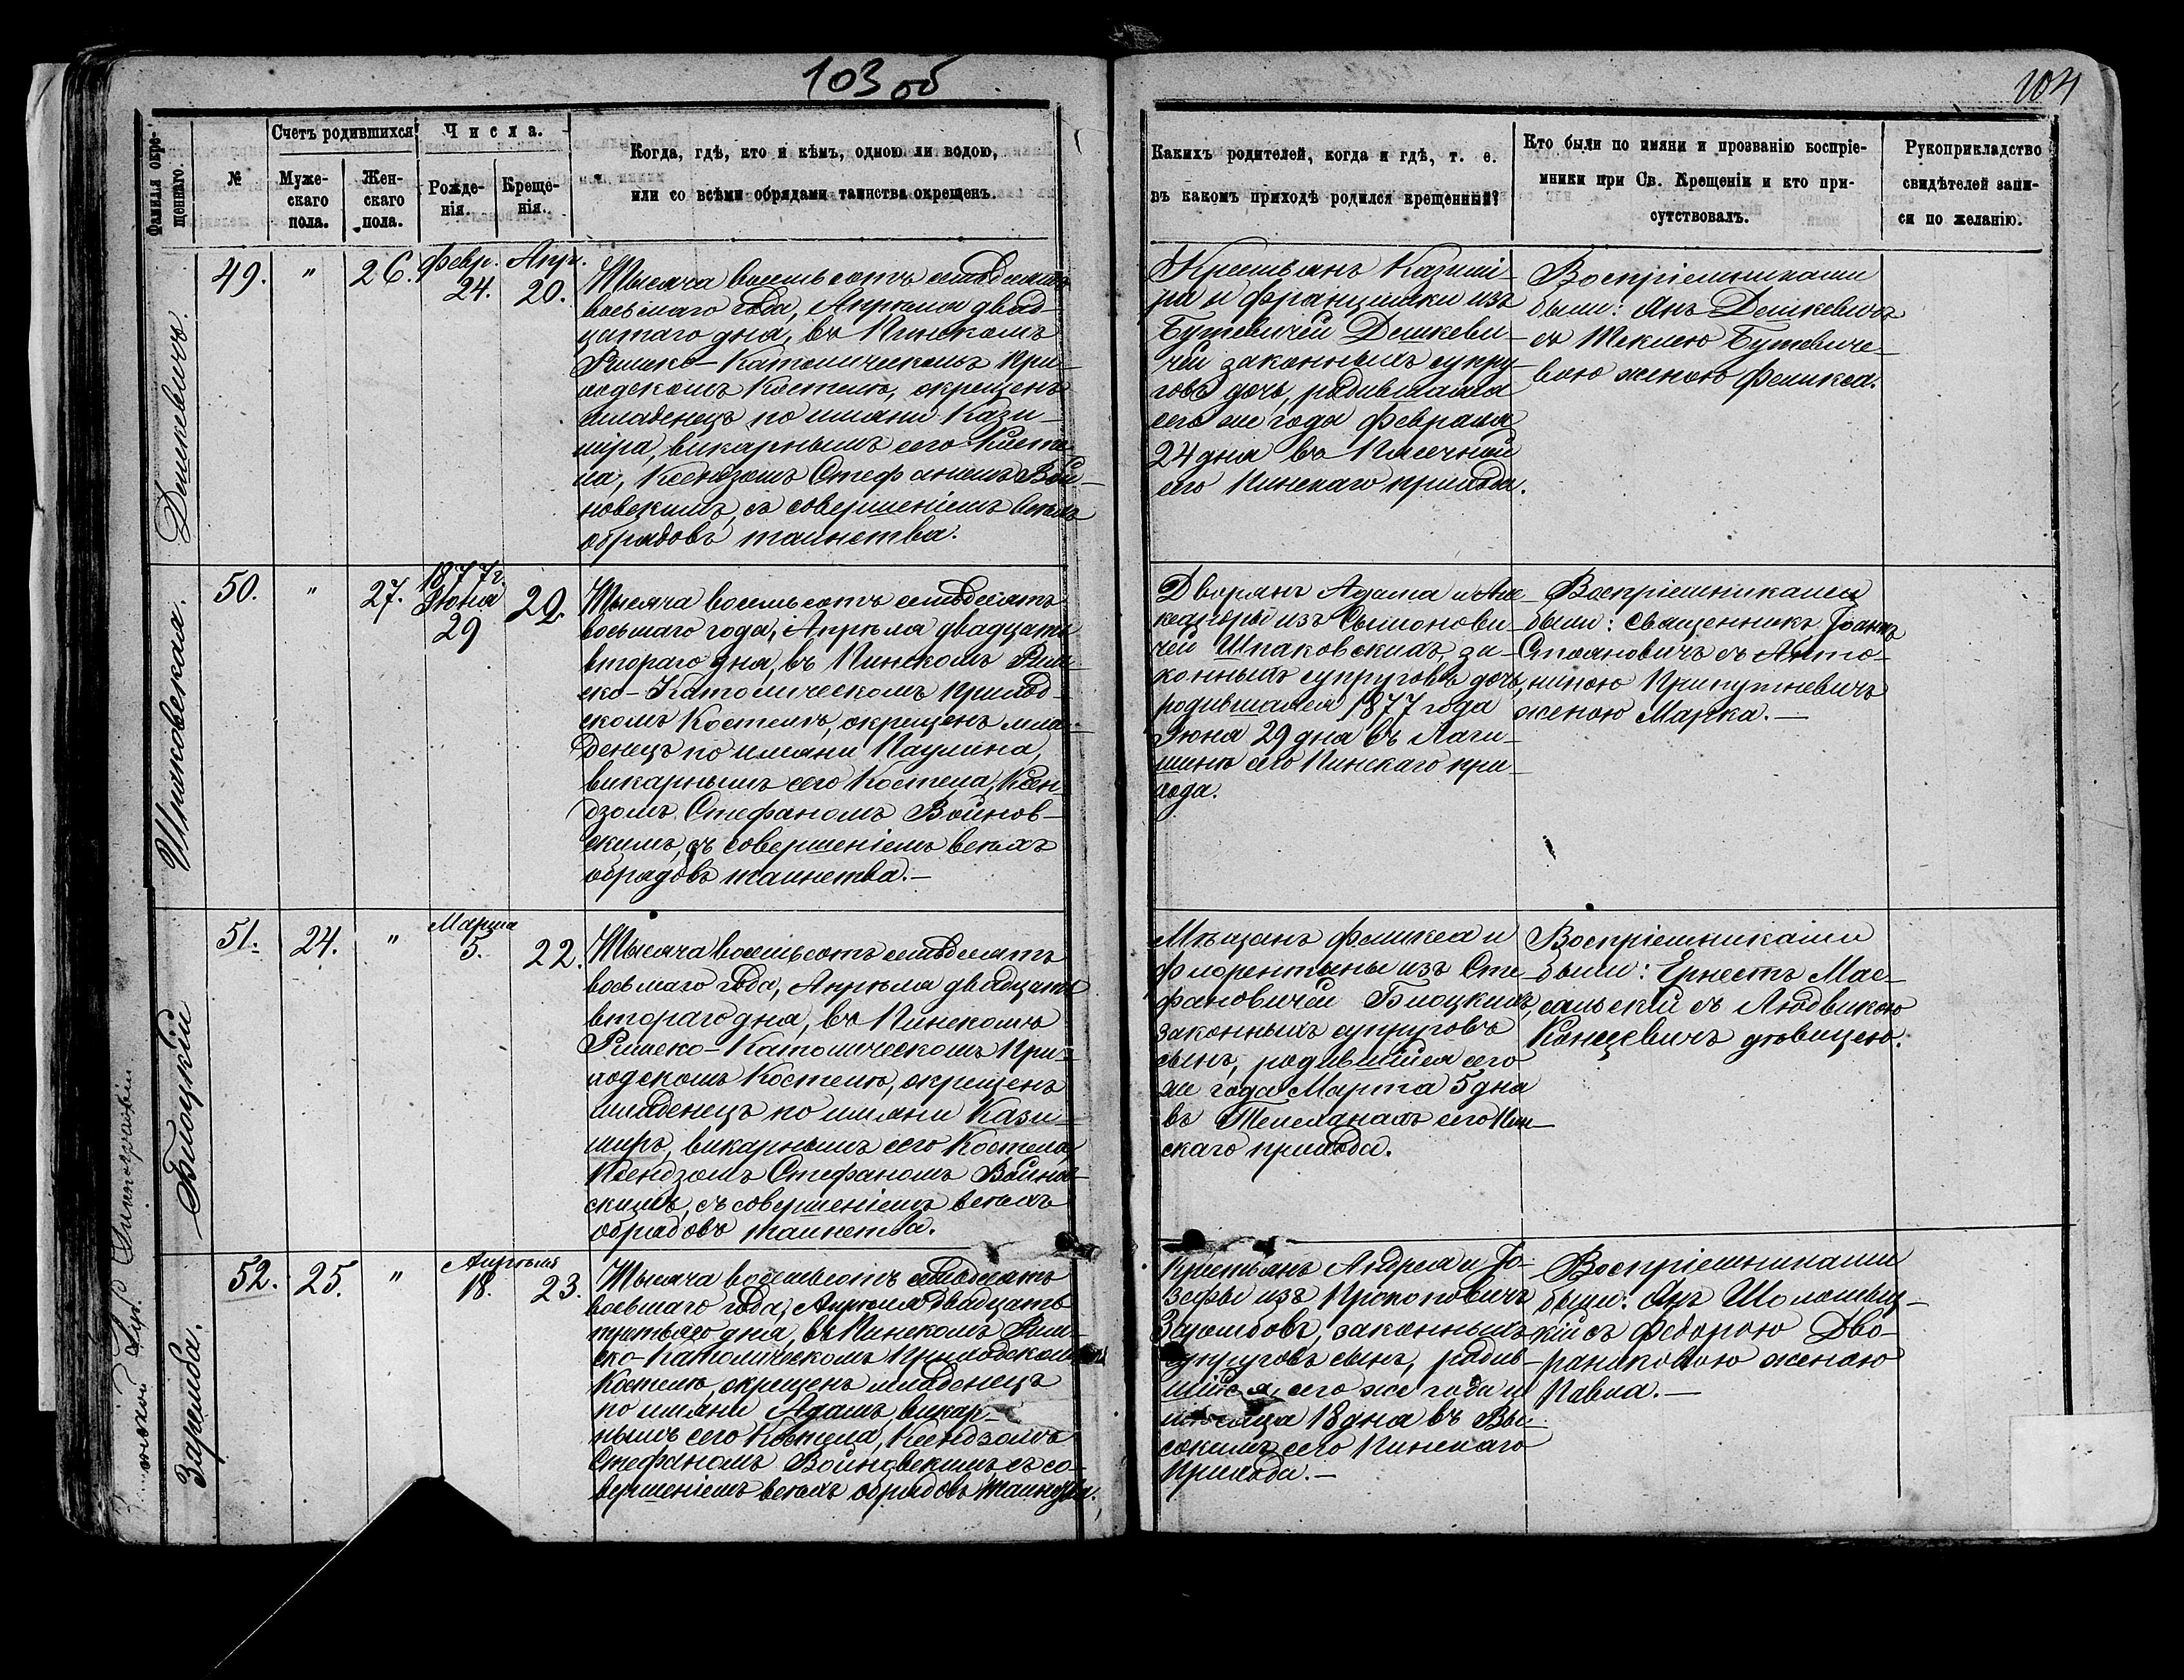 103 об
104
Фамилія окре-
щеннаго.
№
Счетъ родившихся
Муже-
скаго
пола.
Жен-
скаго
пола.
Числа.
Рожде-
нія.
Креще-
нія.
Когда, гдѣ, кто и кѣмъ, одною ли водою,
или со всѣми обрядами таинства окрещенъ.
Какихъ родителей, когда и гдѣ, т. е.
въ какомъ приходѣ родился крещенный?
Кто были по имяни и прозванію воспріе-
мники при Св. Крещеніи и кто при-
сутствовалъ.
Рукоприкладство
свидѣтелей запи-
си по желанію.
Дешкевичъ.
49.
"
26.
Февр.
24.
Апр.
20.
Тысяча восемьсотъ семьдесятъ
восьмаго года, Апрѣля двад-
цатаго дня, въ Пинскомъ
Римско-Католическомъ При-
ходскомъ Костелѣ, окрещенъ
младенецъ по имяни Кази-
міра, викарнымъ сего Косте-
ла, Ксендзомъ Стефаномъ Вой-
новскимъ, съ совершеніемъ всѣхъ
обрядовъ таинства.
Крестьянъ Казимі-
ра и Францишки изъ
Бутевичей Дешкеви-
чей законныхъ супру-
говъ дочь, родившаяся
сего же года Февраля
24 дня въ Пасечной
сего Пинскаго прихода.
Воспріемниками
были: Янъ Дешкевичъ
съ Теклею Бутевиче-
вою женою Феликса.
Шпаковская.
50.
"
27.
1877 г.
Іюня
29
22.
Тысяча восемьсотъ семьдесятъ
восьмаго года, Апрѣля двадцать
втораго дня, въ Пинскомъ Рим-
ско-Католическомъ приход-
скомъ Костелѣ, окрещенъ мла-
денецъ по имяни Паулина,
викарнымъ сего Костела, Ксен-
дзомъ Стефаномъ Войнов-
скимъ, съ совершеніемъ всѣхъ
обрядовъ таинства.-
Дворянъ Адама и Але-
ксандры изъ Сымонови-
чей Шпаковскихъ, за-
конныхъ супруговъ дочь,
родившаяся 1877 года
Іюня 29 дня въ Логи-
шинѣ сего Пинскаго при-
хода.
Воспріемниками
были: Священникъ Іоаннъ
Стояновичъ съ Анто-
ниною Припутневичъ
женою Марка.-
Блоцкій
51.
24.
"
Марта
5.
22.
Тысяча восемьсотъ семьдесятъ
восьмаго года, Апрѣля двадцать
втораго дня, въ Пинскомъ
Римско-Католическомъ При-
ходскомъ Костелѣ, окрещенъ
младенецъ по имяни Кази-
миръ, викарнымъ сего Костела,
Ксендзомъ Стефаномъ Войнов-
скимъ, съ совершеніемъ всѣхъ
обрядовъ таинства.
Мѣщанъ Феликса и
Флорентыны изъ Сте-
фановичей Блоцкихъ,
законныхъ супруговъ
сынъ, родившійся сего
же года Марта 5 дня
въ Телеханахъ сего Пин-
скаго прихода.
Воспріемниками
были: Ернестъ Мас-
сальскій съ Людвикою
Концевичъ дѣвицею.
Заремба.
52.
25.
"
Апрѣля
18.
23.
Тысяча восемьсотъ семьдесятъ
восьмаго года, Апрѣля двадцать
третьяго дня, въ Пинскомъ Рим-
ско-Католическомъ Приходскомъ
Костелѣ, окрещенъ младенецъ
по имяни Адамъ, викар-
нымъ сего Костела, Ксендзомъ
Стефаномъ Войновскимъ съ со-
вершеніемъ всѣхъ обрядовъ таинства.
Крестьянъ Андрея и Іо-
зефы изъ Прокоповичъ
Зарембовъ, законныхъ
супруговъ сынъ, родив-
шійся, сего же года и
мѣсяца 18 дня въ Вы-
сокимъ сего Пинскаго
прихода.-
Воспріемниками
были: Янъ Шоломиц-
кій съ Федорою Дво-
раниковою женою
Павла.-